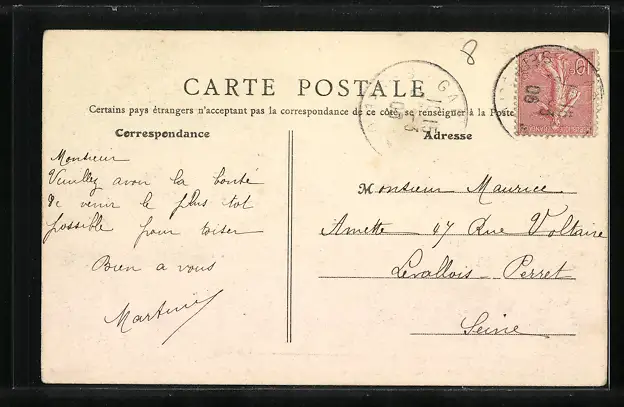 8
CARTE POSTALE
Certains pays étrangers n'acceptant pas la correspondance de ce côté, se renseigner à la Poste
Correspondance
Adresse
Monsieur
Veuillez avoir la bonté
de venir le plus tot
possible pour
Bien a vous
Martin
Monsieur Maurice
Amette 47 Rue Voltaire
Levallois-Perret
Seine